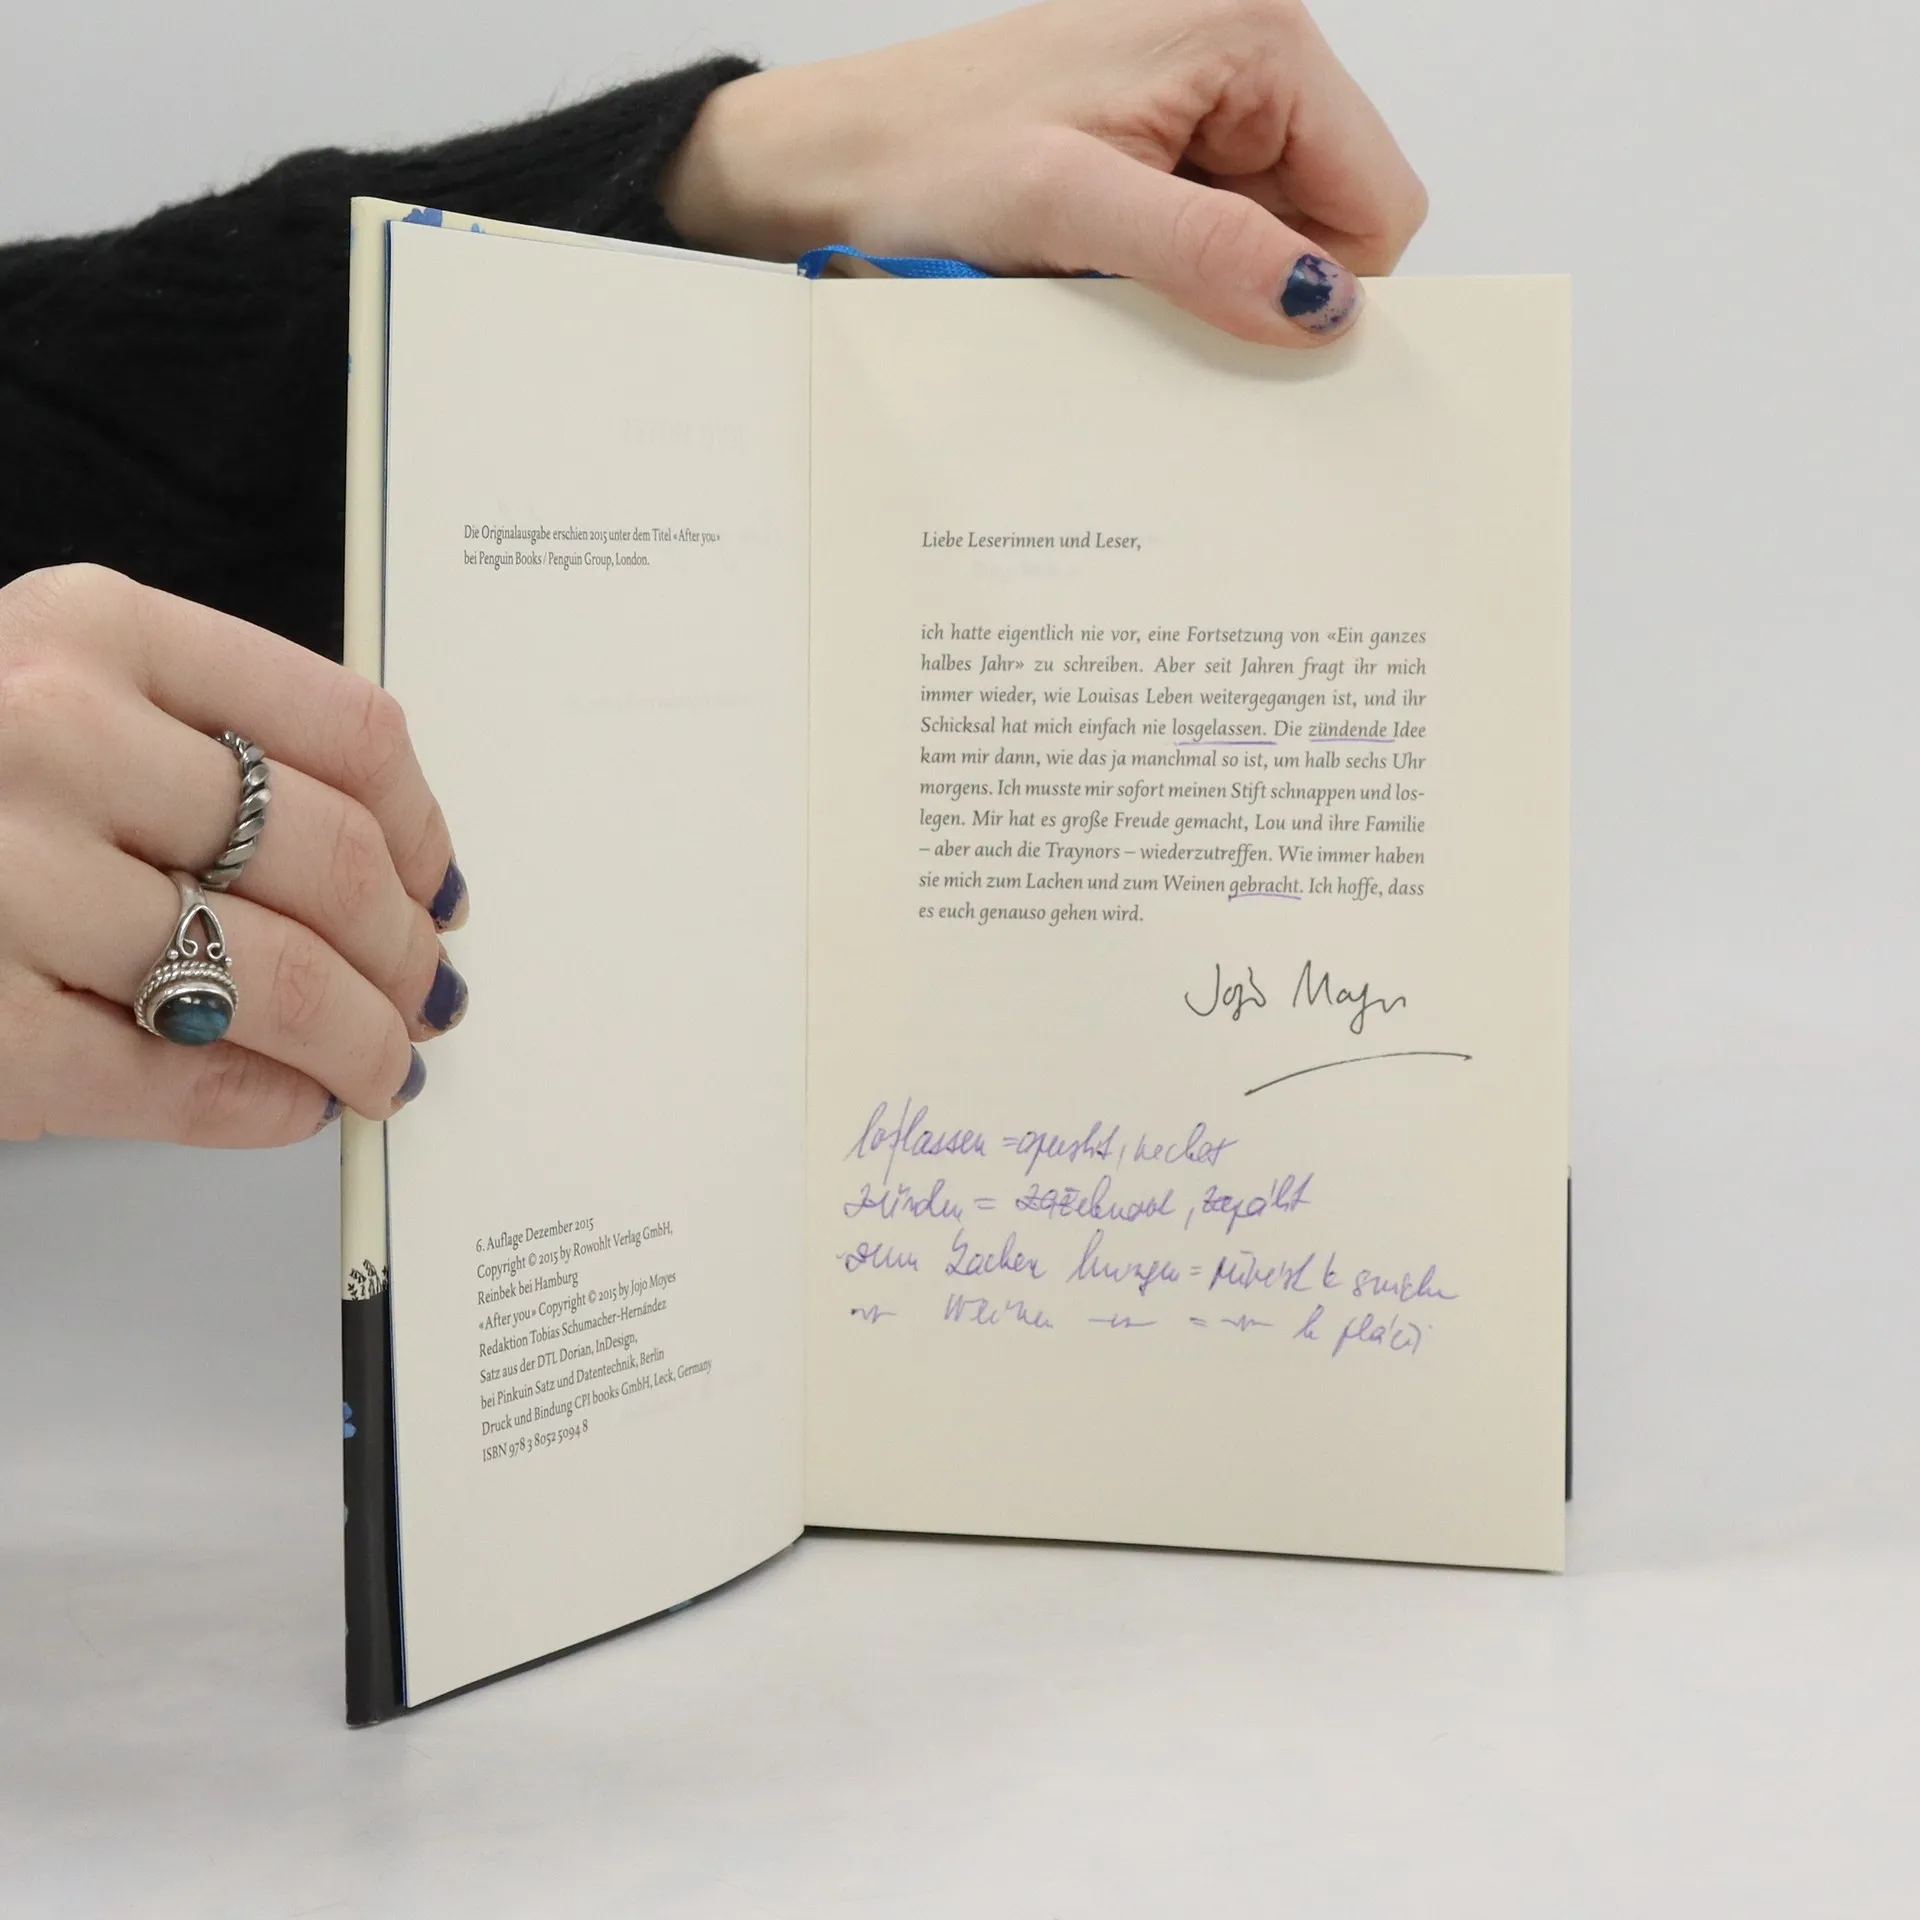 Die Originalausgabe erschien 2015 unter dem Titel «After you»
bei Penguin Books / Penguin Group, London.
6. Auflage Dezember 2015
Copyright © 2015 by Rowohlt Verlag GmbH,
Reinbek bei Hamburg
«After you» Copyright © 2015 by Jojo Moyes
Redaktion Tobias Schumacher-Hernández
Satz aus der DTL Dorian, InDesign,
bei Pinkuin Satz und Datentechnik, Berlin
Druck und Bindung CPI books GmbH, Leck, Germany
ISBN 978 3 8052 5094 8
Liebe Leserinnen und Leser,
ich hatte eigentlich nie vor, eine Fortsetzung von «Ein ganzes
halbes Jahr» zu schreiben. Aber seit Jahren fragt ihr mich
immer wieder, wie Louisas Leben weitergegangen ist, und ihr
Schicksal hat mich einfach nie losgelassen. Die zündende Idee
kam mir dann, wie das ja manchmal so ist, um halb sechs Uhr
morgens. Ich musste mir sofort meinen Stift schnappen und los-
legen. Mir hat es große Freude gemacht, Lou und ihre Familie
– aber auch die Traynors – wiederzutreffen. Wie immer haben
sie mich zum Lachen und zum Weinen gebracht. Ich hoffe, dass
es euch genauso gehen wird.
Jojo Moyes
loslassen = opustit, nechat
zünden =
zum Lachen bringen = k
Weinen = k pláči